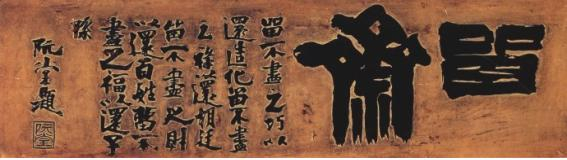 留余
留不盡之巧以
還造化留不盡
之祿還朝廷
留不盡之財
以還百姓留不
盡之福以還子
孫
題